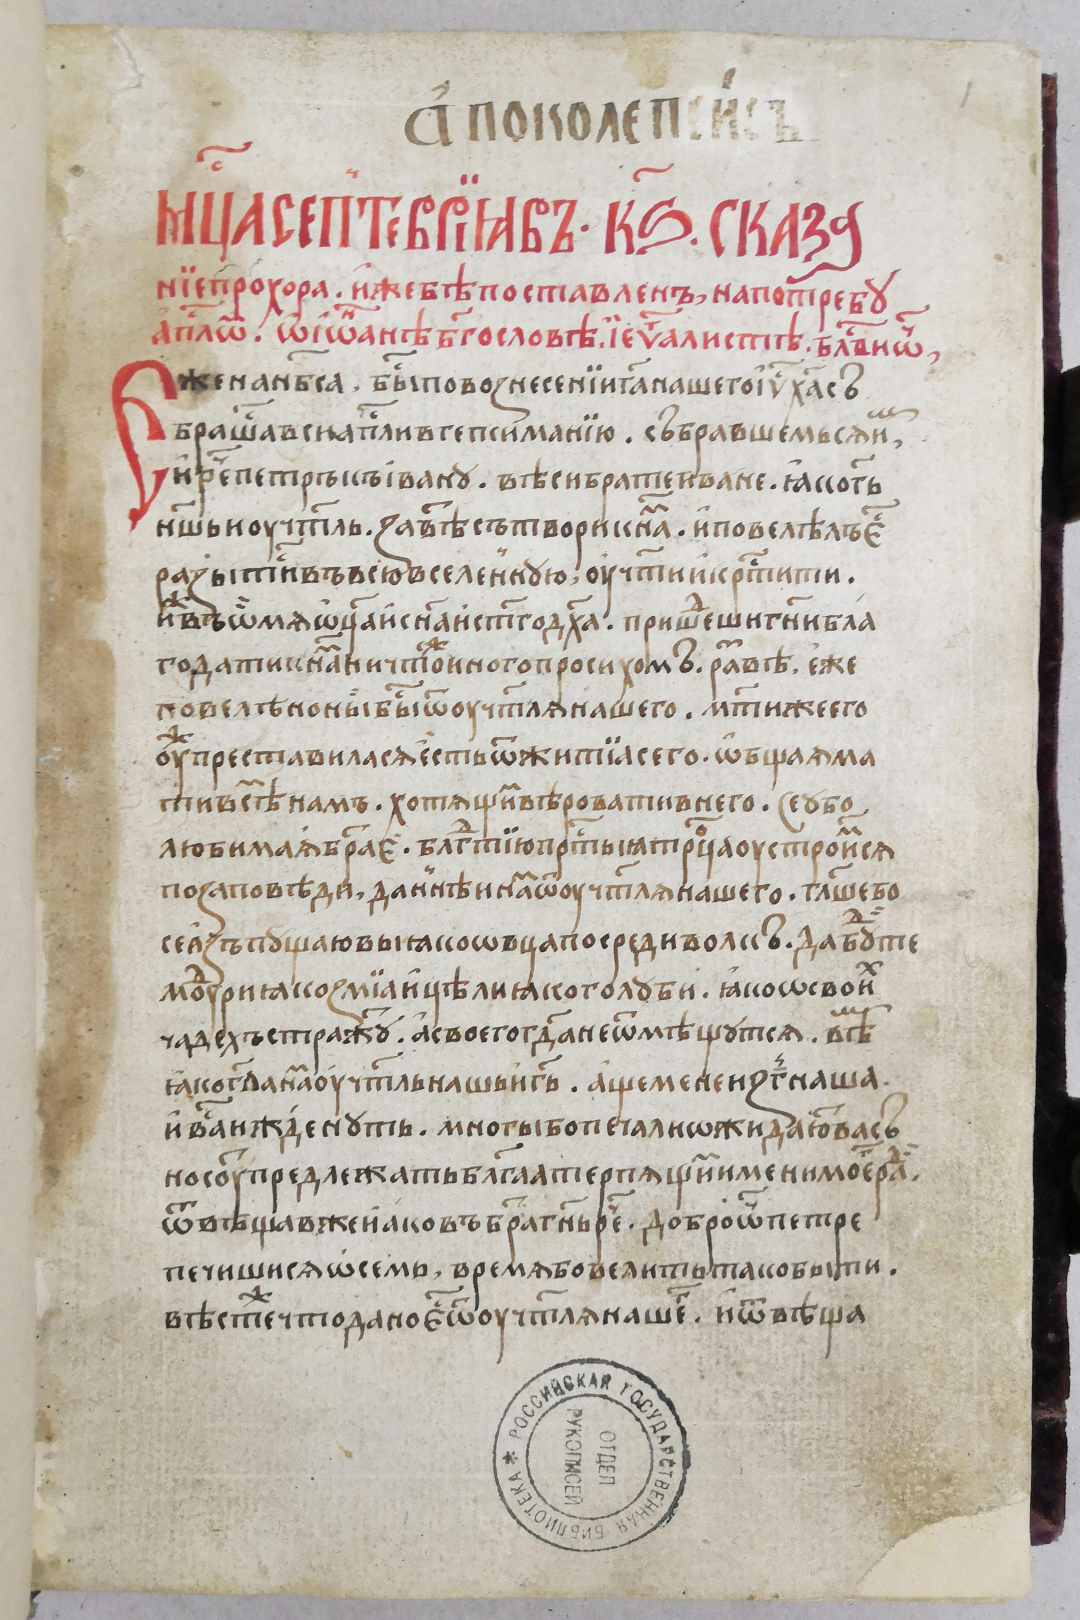 а҆поколепсиⷭ҇съ
мц҃а септеврїѧ въ · к҃ѕ · сказа
нїе прохора . и҆же бѣ поставленъ, на потребу
а҆пⷭ҇лѡ҄ . ѡ҆ і҆ѡ҆аннѣ бг҃ословѣ . і҆ еѵⷢ҇алистѣ . бл҃ви ѿ,
Еже на нб҃са . бывⷲ҇ по вознесенїи га҃ нашего і҆ѵ҃ хаⷭ҇ съ
браша всѧ а҆пⷭ҇ли в гепсиманїю . събравшемъсѧ и҆ⷨ,
и҆ реⷱ҇ петръ къ і҆вану . вѣси брате и҆ване . ꙗ҆ко гь҃
нш҃ь и оучт҃ль . завѣⷮ сътвори к наⷨ . и҆ повелѣлъ є҆ⷭ҇
разыти в въ всю вселенную, оучити и҆ крⷭ҇тити .
и҆ⷯ въ и҆мѧ ѡ҆ц҃а и҆ сн҃а и҆ ст҃го дх҃а . пришеⷣши гн҃и бла
годати к наⷨ ничтоⷤ и҆ного просихомъ . раⷥвѣ . е҆же
повелѣно ны быⷭ҇ ѿ оучт҃лѧ нашего . мт҃и же его
оуⷤ преставиласѧ е҆сть ѿ житїа сего . ѡ҆бщаѧ ма
ти всѣⷨ намъ . хотѧщиⷨ вѣровати в него . се убо
любимаѧ браⷮє . блгⷣтїю прⷭ҇тыѧ трⷪ҇ца оустроиⷨсѧ
по заповѣди, даннѣи наⷨ ѿ оучт҃лѧ нашего . гл҃аше бо
се а҆зъ пущаю вы ꙗко ѡвца посреди волкъ . да буⷣте
моуⷣри ꙗко змїа и҆ цѣли ꙗко голуби . ꙗ҆ко ѡ свои҆ⷯ
чадехъ стражу . а҆ своего гдⷭ҇а не ѿмѣщутсѧ . вѣⷭ҇
ꙗ҆ко гл҃а наⷨ оучт҃ль нашь и҆ гь҃ . а҆ще мене и҆згⷩ҇аша
и҆ ваⷭ҇ ижденуть . многы бо печали ѡжидаюⷮ васъ
но соуⷮ предлежать блг҃аа терпѧщиⷨ имени моеⷢ҇ раⷣ .
ѿвѣщав же и҆аковъ браⷮ гн҃ь реⷱ҇ . добро ѡ҆ⷮ петре
печишисѧ ѡ҆ семь, времѧ бо велить тако быти .
вѣстеⷤ что дано єⷭ҇ ѿ оучт҃лѧ нашеⷢ҇ . и҆ ѿвѣща
РОССИЙСКАЯ ГОСУДАРСТВЕННАЯ БИБЛИОТЕКА *
ОТДЕЛ
РУКОПИСЕЙ